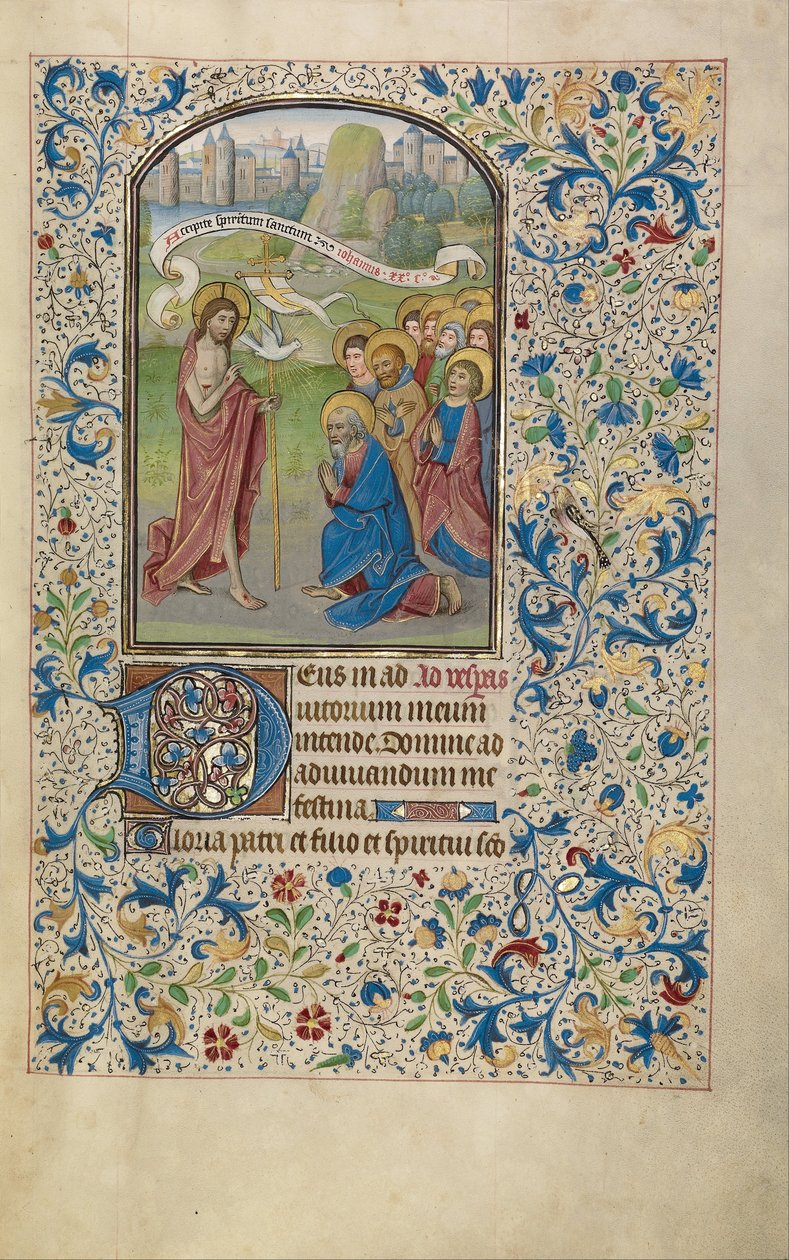 Accipite spiritum sanctum iohannis · xx° · c°
Deus in ad Ad vespas
iutorium meum
intende. Domine ad
adiuuandum me
festina.
Gloria patri et filio et spiritui sco